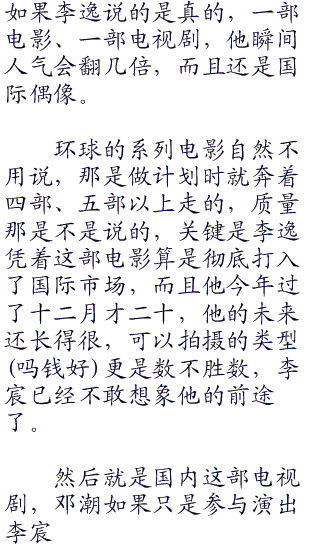 如果李逸说的是真的，一部
电影、一部电视剧，他瞬间
人气会翻几倍，而且还是国
际偶像。
环球的系列电影自然不
用说，那是做计划时就奔着
四部、五部以上走的，质量
那是不是说的，关键是李逸
凭着这部电影算是彻底打入
了国际市场，而且他今年过
了十二月才二十，他的未来
还长得很，可以拍摄的类型
(吗钱好)更是数不胜数，李
宸已经不敢想象他的前途
了。
然后就是国内这部电视
剧，邓潮如果只是参与演出
李宸